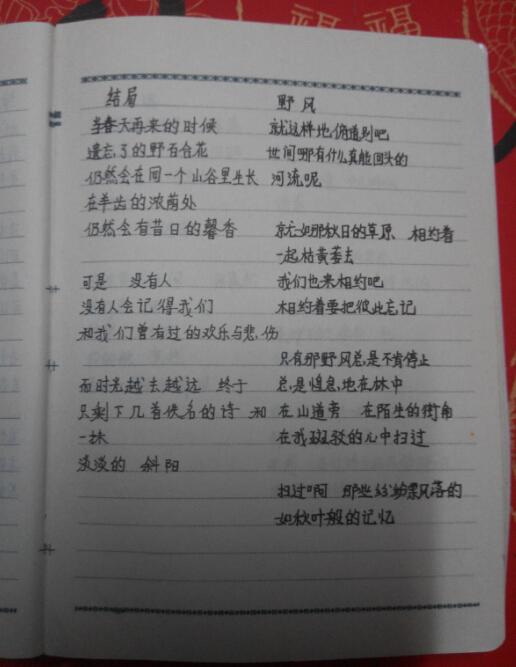 福 福
结局
当春天再来的时候
遗忘了的野百合花
仍然会在同一个山谷里生长
在羊齿的浓荫处
仍然会有昔日的馨香
可是 没有人
没有人会记得我们
和我们曾有过的欢乐与悲伤
而时光越去越远 终于
只剩下几首佚名的诗 和
一抹
淡淡的 斜阳
野风
就这样地俯道别吧
世间哪有什么真能回头的
河流呢
就如那秋日的草原 相约着
一起枯黄萎去
我们也来相约吧
相约着要把彼此忘记
只有那野风总是不肯停止
总是惶急地在林中
在山道旁 在陌生的街角
在我斑驳的心中扫过
扫过啊 那些纷纷飘落的
如秋叶般的记忆